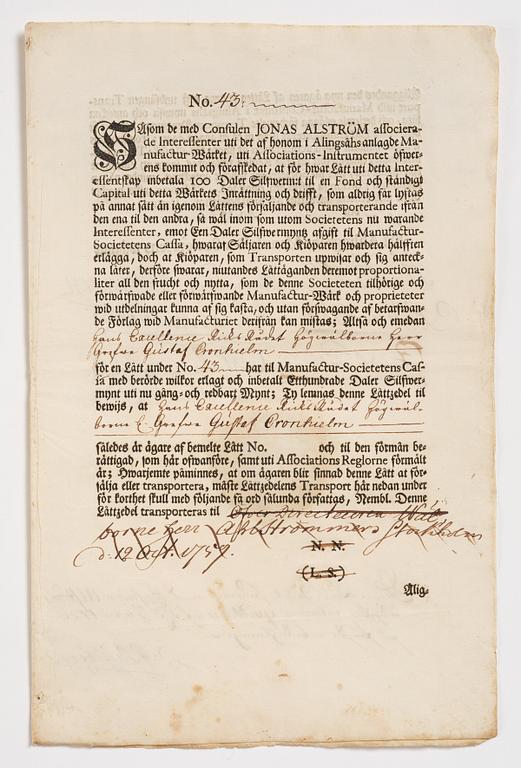 No. 43.
Såsom de med Consulen JONAS ALSTRÖM associera-
de Interessenter uti det af honom i Alingsåhs anlagde Ma-
nufactur-Wärket, uti Associations-Instrumentet öfwer-
ens kommit och föraffkedat, at för hwar Lått uti detta Inter-
essentskap inbetala 100 Daler Silfwerm:t til en Fond och ständigt
Capital uti detta Wärkets Inrättning och drifft, som aldrig får lyftas
på annat sätt än igenom Lättens försäljande och transporterande ifrån
den ena til den andra, så wäl inom som utom Societetens nu warande
Interessenter, emot Een Daler Silfwermyntz afgift til Manufactur-
Societetens Cassa, hwaraf Säljaren och Kiöparen hwardera hälfften
erlägga, doch at Kiöparen, som Transporten upwijsar och sig anteck-
na låter, derföre swarar, niutandes Lättäganden deremot proportiona-
liter all den frucht och nytta, som de denne Societeten tilhörige och
förwärfwade eller förwärfwande Manufactur-Wärk och proprieteter
wid utdelningar kunna af sig kasta, och utan förswagande af betarfwan-
de Förlag wid Manufacturiet derifrån kan mistas; Altså och emedan
Hans Excellence Riks Rådet Högwälborne Herr
Grefwe Gustaf Cronhielm
för en Lått under No. 43 har til Manufactur-Societetens Cas-
sa med berörde wilkor erlagt och inbetalt Etthundrade Daler Silfwer-
mynt uti nu gång- och redbart Mynt; Ty lemnas denne Låttzedel til
bewijs, at Hans Excellence Riks Rådet Högwäl-
borne H. Grefwe Gustaf Cronhielm
således är ägare af bemelte Lått No. och til den förmån be-
rättigad, som här ofwanföre, samt uti Associations Reglorne förmält
är; Hwarjemte påminnes, at om ägaren blir sinnad denne Lått at för-
sälja eller transportera, måste Låttzedelens Transport här nedan under
för korthet skull med följande få ord sålunda författas, Nembl. Denne
Låttzedel transporteras til Öfver Directeuren Wäl
borne Herr Alströmmers Stockholm
d: 12 Oct. 1759.
N. N.
(L. S.)
Alig-